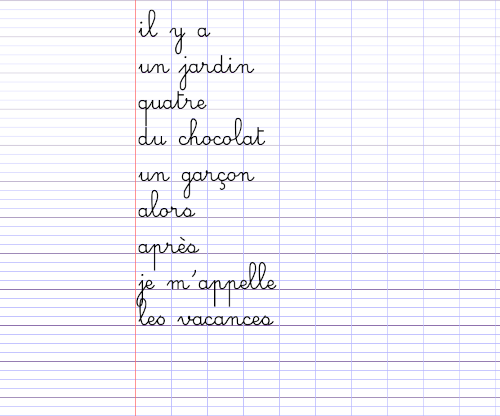 il y a
un jardin
quatre
du chocolat
un garçon
alors
après
je m'appelle
les vacances